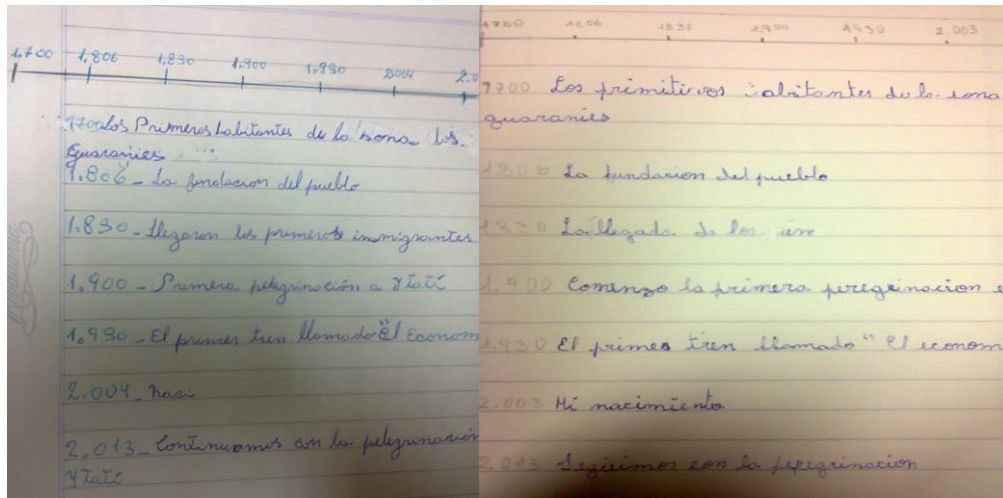 1.700 1,806 1,830 1,900 1,930 2004 2.0
1700 Los Primeros habitantes de la zona los
Guaranies
1.806 - La fundacion del pueblo
1.830 - llegaron los primeros inmigrantes
1.900 - Primera pelegrinación a Ytatí
1.930 - El primer tren llamado "El Econom
2.004 - Naci
2.013 - Continuamos con la pelegrinación
Ytatí
1700 1806 1830 1.900 1930 2.003
1700 Los primitivos abitantes de la sona
guaranies
1806 La fundacion del pueblo
1830 La llegada de los
1.900 Comenzo la primera peregrinacion
1.930 El primer tren llamado "El econom
2.003 Mi nacimiento
2.013 Seguimos con la peregrinacion